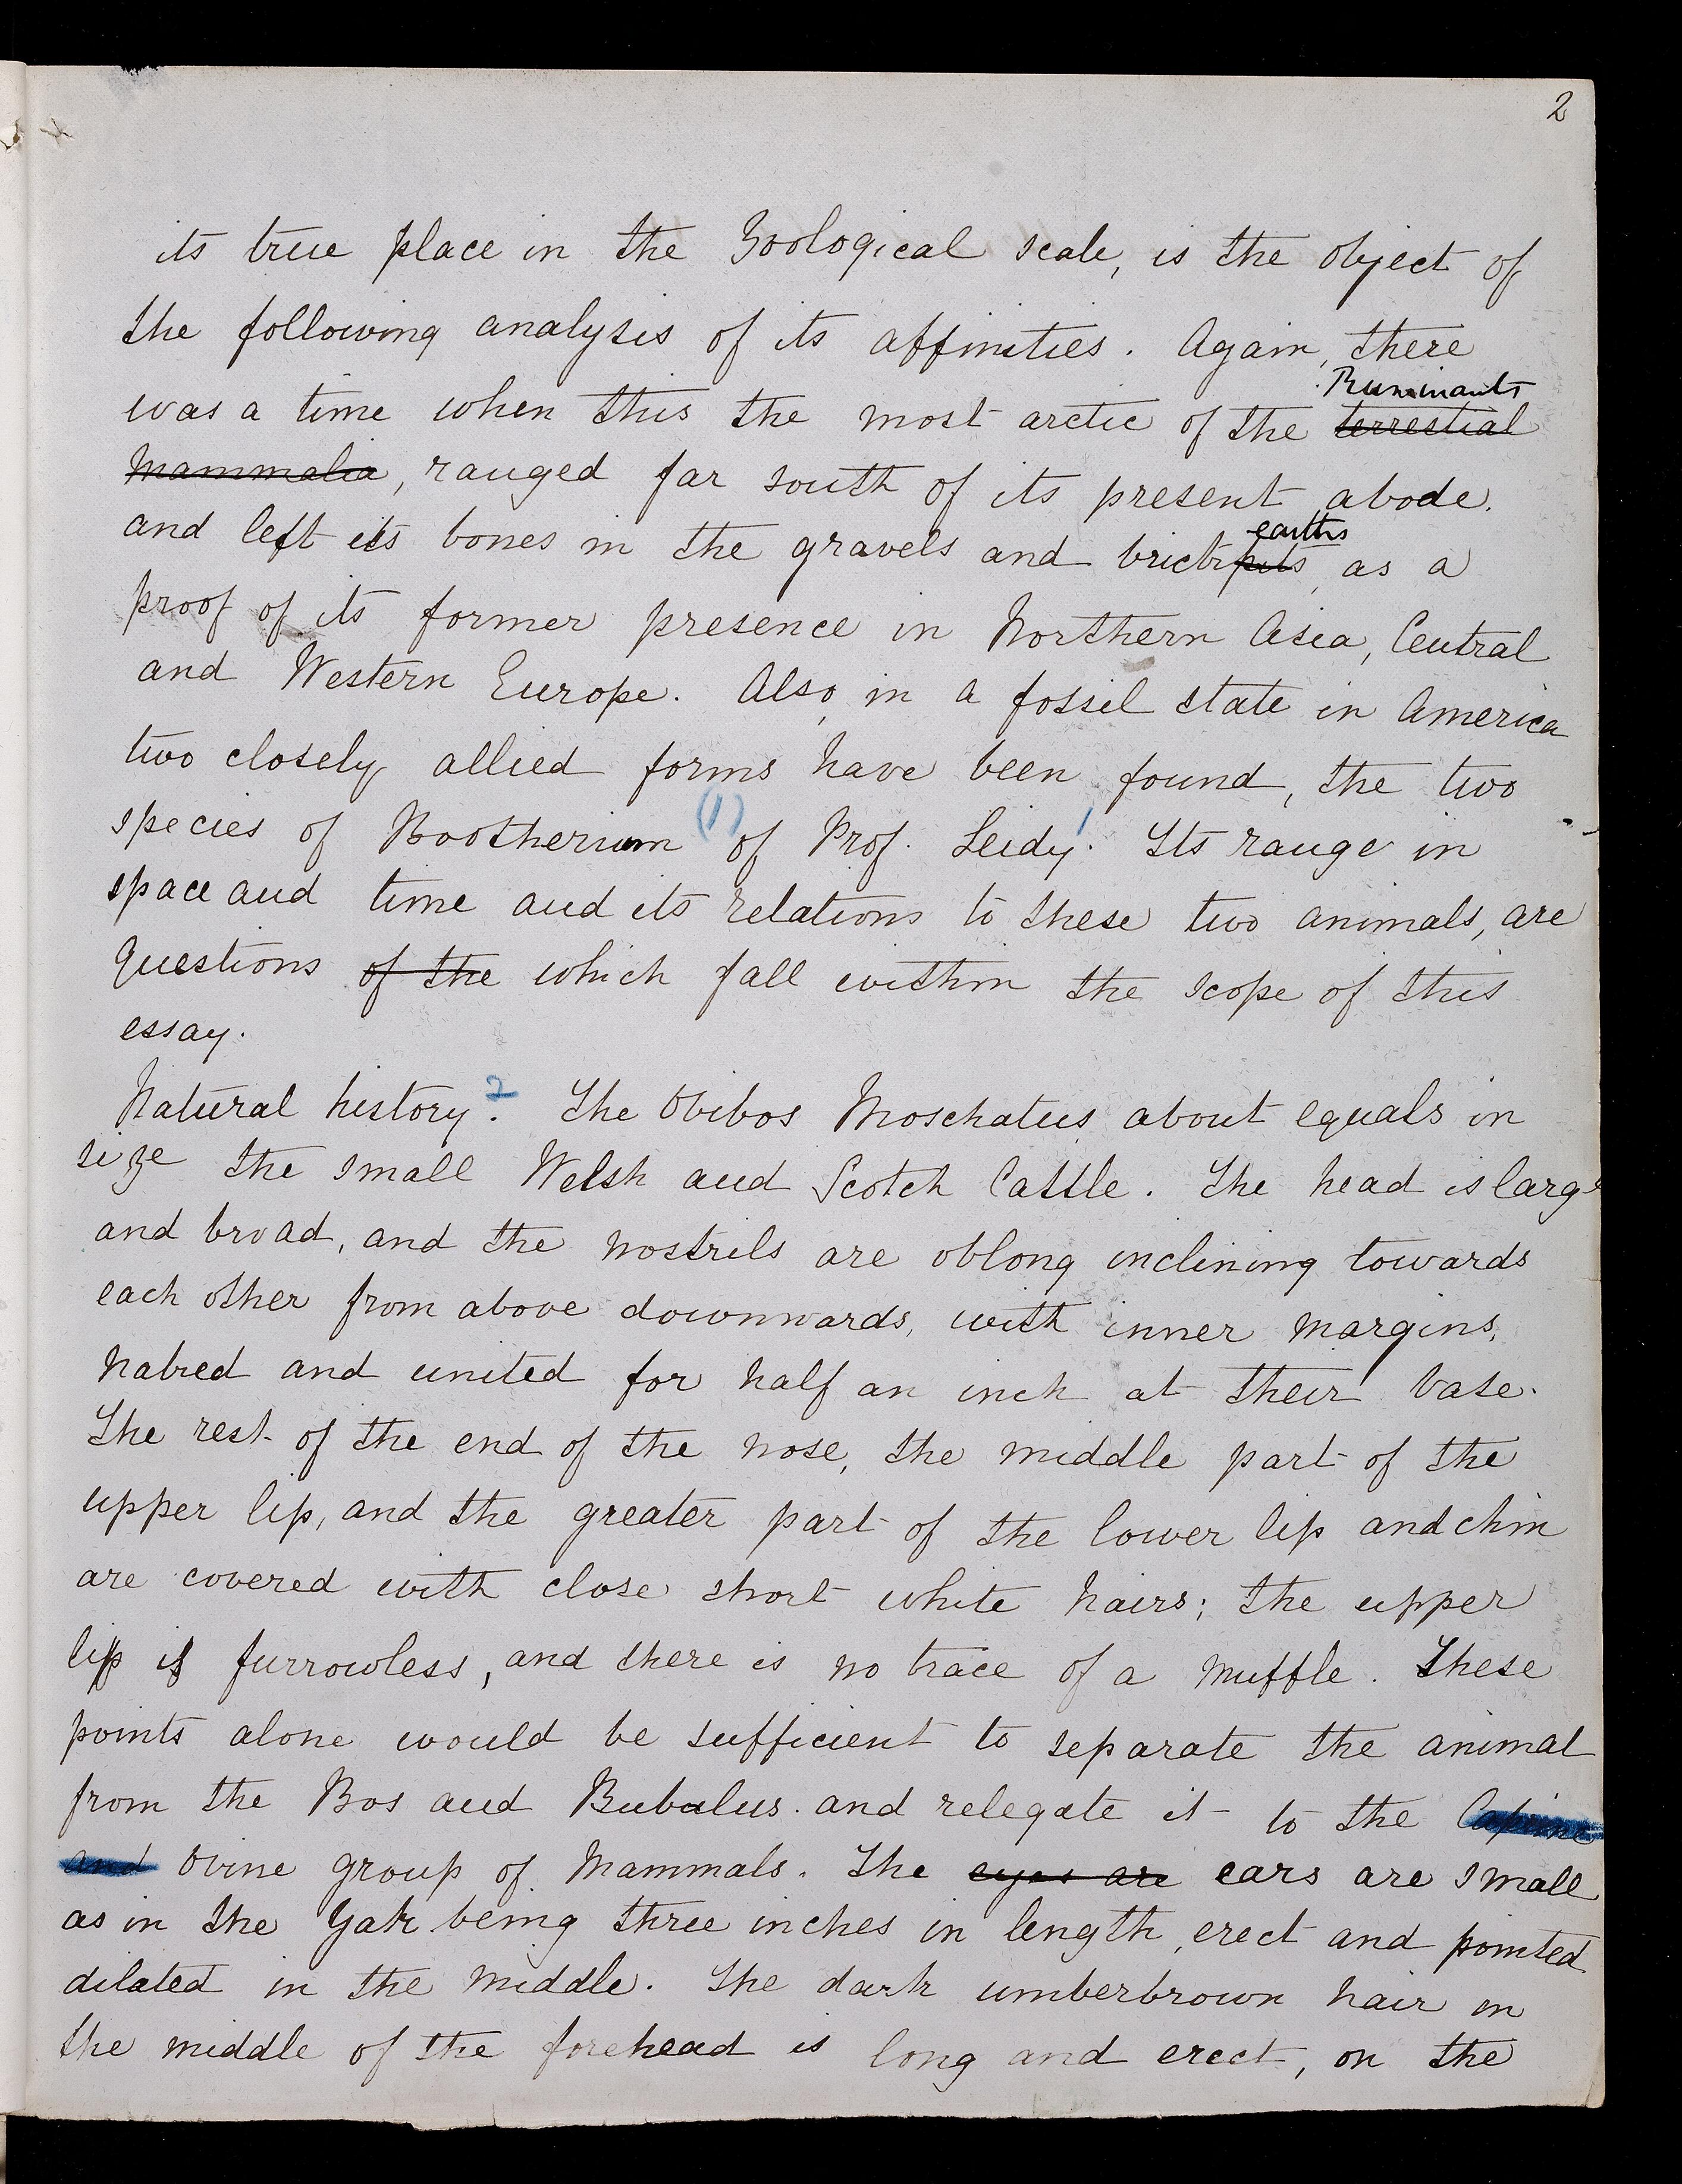 2
its true place in the Zoological scale, is the object of
the following analysis of its affinities. Again, there
Ruminants
was a time when this the most arctic of the terrestial
Mammalia, ranged far south of its present abode.
earths
and left its bones in the gravels and brickpits, as a
proof of its former presence in Northern Asia, Central
and Western Europe. Also, in a fossil state in America
two closely allied forms have been found, the two
species of Bootherium (1) of Prof. Leidy.1 Its range in
space and time and its relations to these two animals, are
questions of the which fall within the scope of this
essay.
Natural history.2 The Ovibos Moschatus about equals in
size the small Welsh and Scotch Cattle. The head is large
and broad, and the nostrils are oblong inclining towards
each other from above downwards, with inner margins,
naked and united for half an inch at their base.
The rest of the end of the nose, the middle part of the
upper lip, and the greater part of the lower lip and chin
are covered with close short white hairs; the upper
lip is furrowless, and there is no trace of a muffle. These
points alone would be sufficient to separate the animal
from the Bos and Bubalus. and relegate it to the Caprine
and Ovine group of Mammals. The eyes are ears are small
as in the Yak being three inches in length, erect and pointed
dilated in the middle. The dark umberbrown hair in
the middle of the forehead is long and erect, on the